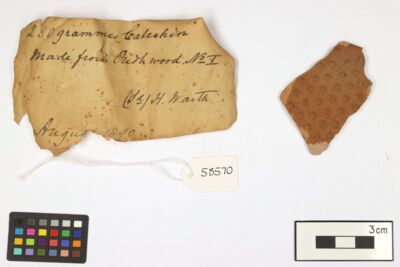 280 grammes Catechin
Made from Redh wood No I
(Sd) H. Warth
August 1890
58570
3cm